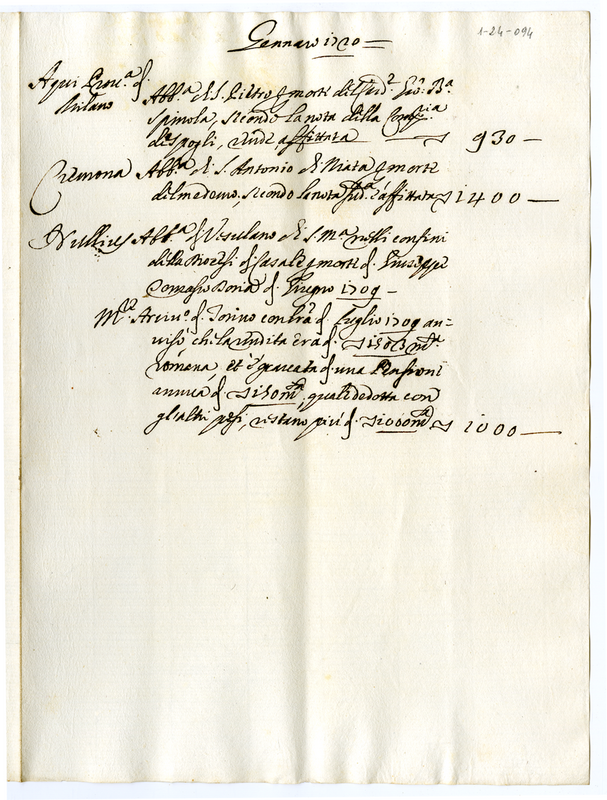 Gennaro 1710
1-24-094
Aqui Prov.a di Milano Abb.a di S. Pietro per morte del sud.o Gio. B.a
Spinola, secondo la nota della
de spogli, rende affittata 930
Cremona Abb.a di S. Antonio di per morte
del medemo, secondo la nota sud.a è affittata 1400
Nullius Abb.a di Vesulano di S. M.a nelli confini
della Diocesi di Casale per morte di Giuseppe
Tomaso Doria di Giugno 1709
M.r Arciv.o di Torino con lr̃a di Luglio 1709 au=
visò che la rendita era di m.ta
romana, et è gravata di una Pensione
annua di 150 m.ta, quale dedotta con
gl'altri pesi, restano più di 1000 m.ta 1000